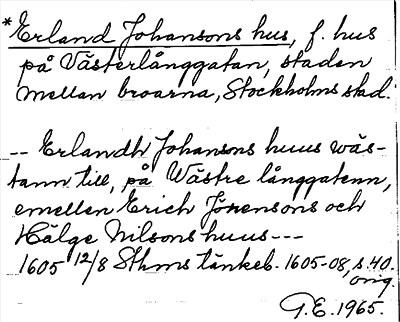 *Erland Johansons hus, f. hus
på Västerlånggatan, staden
mellan broarna, Stockholms stad.
-- Erlandh Johansons huus wäs-
tann till, på Wästre långgatenn,
emellen Erich Jönensons och
Hälge Nilsons huus---
1605 12/8 Sthms tänkeb. 1605-08, s. 40.
orig.
G.E. 1965.